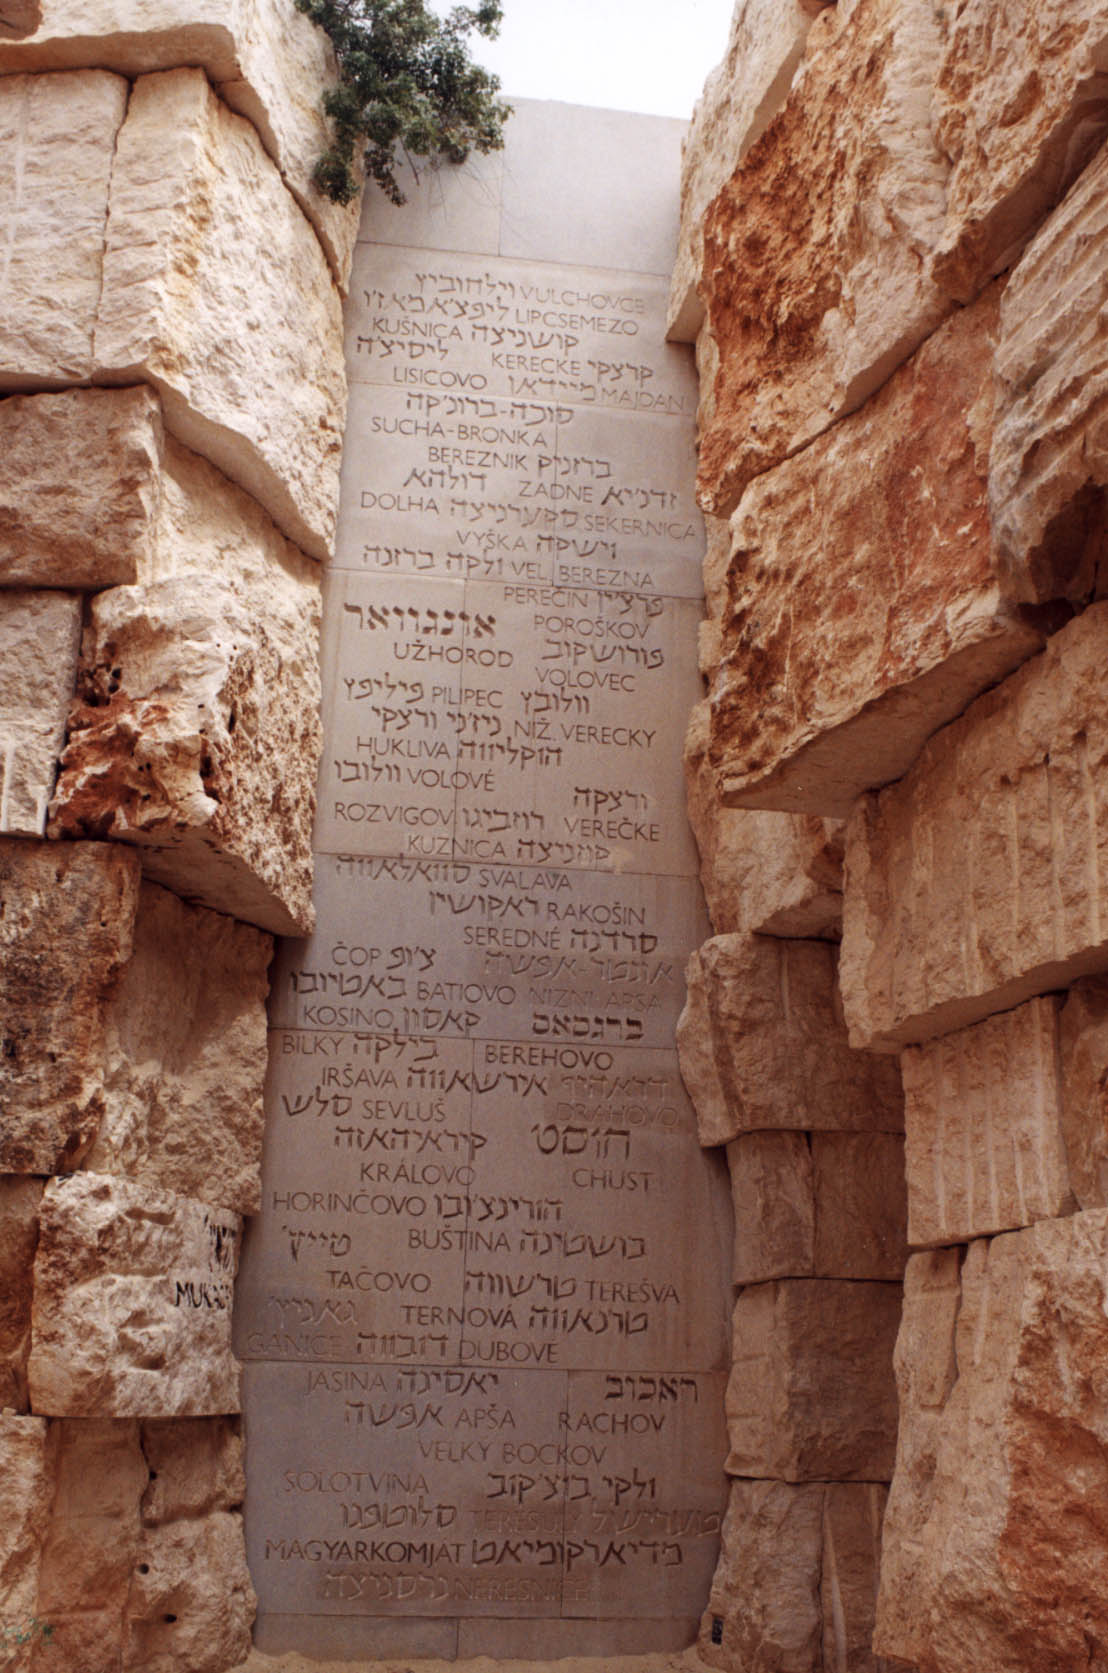 וילחוביץ VULCHOVCE
ליפצ'אמאז'ו LIPCSEMEZO
KUŠNICA קושניצה
ליסיצ'ה KERECKE קרצקי
LISICOVO מיידאן MAJDAN
סוכה-ברונקה
SUCHA-BRONKA
BEREZNIK ברזניק
דולהא ZADNE זדנ'יא
DOLHA סקערניצה SEKERNICA
VYŠKA וישקה
ולקה ברזנה VEL. BEREZNA
PEREČIN פרצ'ין
אונגוואר POROŠKOV
UŽHOROD פורושקוב
VOLOVEC
פיליפץ PILIPEC וולובץ
ניז'ני ורצקי NIŽ. VERECKY
HUKLIVA הוקליווה
וולובו VOLOVÉ
ורצקה
ROZVIGOV רוזביגו VEREČKE
KUZNICA קוזניצה
סוואלאווה SVALAVA
ראקושין RAKOŠIN
SEREDNÉ סרדנה
ČOP צ'ופ אונטר-אפשה
באטיובו BATIOVO NIZNI-APSA
KOSINO קאסון ברגסאס
BILKY בילקה BEREHOVO
IRŠAVA אירשאווה דראהיף
סלש SEVLUŠ DRAHOVO
קיראיהאזה חוסט
KRÁLOVO CHUST
HORINČOVO הורינצ'ובו
טייץ' BUŠTINA בושטינה
MUKAČ
TAČOVO טרשווה TEREŠVA
גאניץ' TERNOVÁ טרנאווה
GANICE דובווה DUBOVÉ
JASINA יאסינה ראכוב
אפשה APŠA RACHOV
VELKÝ BOCKOV
SOLOTVINA ולקי בוצ'קוב
סלוטפנו
MAGYARKOMJAT מדיארקומיאט
נרסניצה NERESNICE